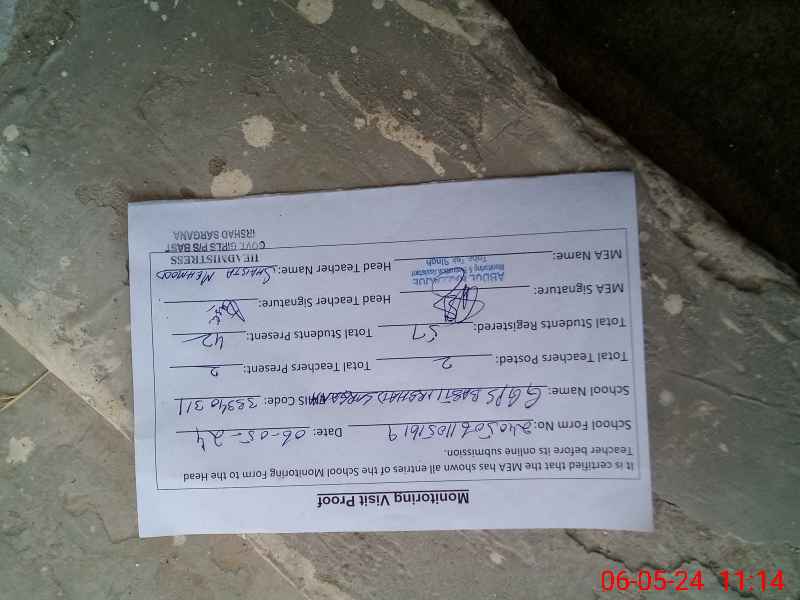 Monitoring Visit Proof
It is certified that the MEA has shown all entries of the School Monitoring Form to the Head
Teacher before its online submission.
School Form No: 240506110516 19 Date: 06-05-24
School Name: GGPS BASTI IRSHAD SARGANA EMIS Code: 38340311
Total Teachers Posted: 2 Total Teachers Present: 2
Total Students Registered: 57 Total Students Present: 42
MEA Signature: Head Teacher Signature:
MEA Name: ABDUL Head Teacher Name: SHAISTA MEHMOOD
Monitoring & Evaluation Assistant
Toba Tek Singh
HEADMISTRESS
GOVT. GIRLS P/S BASTI
IRSHAD SARGANA
06-05-24 11:14